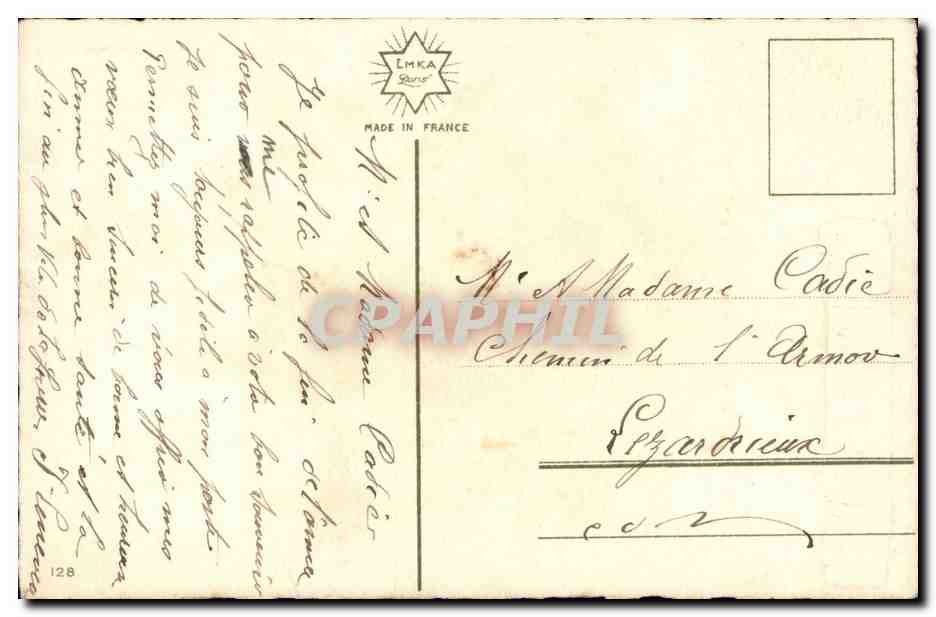 EMKA
Paris
MADE IN FRANCE
Mr et Madame Cadic
Je profite de la fin de l'année
pour me rappeler a votre bon souvenir
Je suis toujours fidèle a mon poste
Permettez moi de vous offrir mes
vœux bien sincère de bonne et heureuse
année et bonne santé et la
fin au plus vite
128
Mr et Madame Cadic
Chemin de l'Armor
Lezardrieux
CdN
CPARHIL